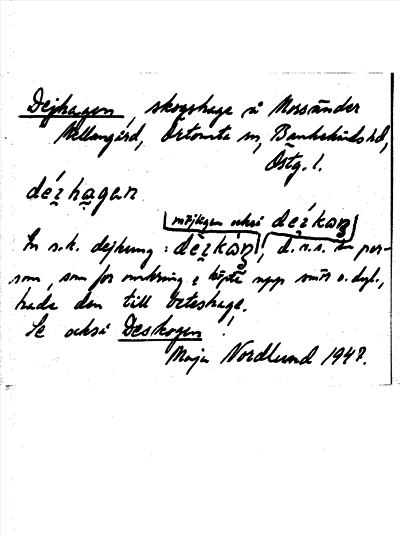 Dejhagen, skogshage å Mossänder
Mellangård, Örtomta sn, Bankekinds hd,
Östg. l.
déi̯hagen
möjligen också déi̯kɷŋ
En s.k. dejkung: dèi̯kɷ́ŋ, d.v.s. en per-
son, som for omkring o köpte upp smör o. dyl.,
hade den till beteshage.
Se också Deskogen!
Maja Nordlund 1947.